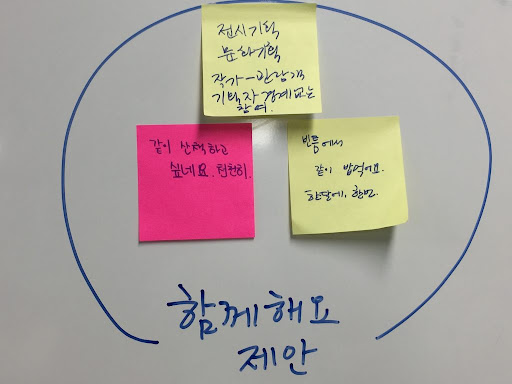 전시기획
문화기획
작가-관람객
기획자 경계 교는
참여.
같이 산책하고
싶네요. 천천히.
빈틈에서
같이 밥먹어요.
한달에. 한번.
함께해요
제안